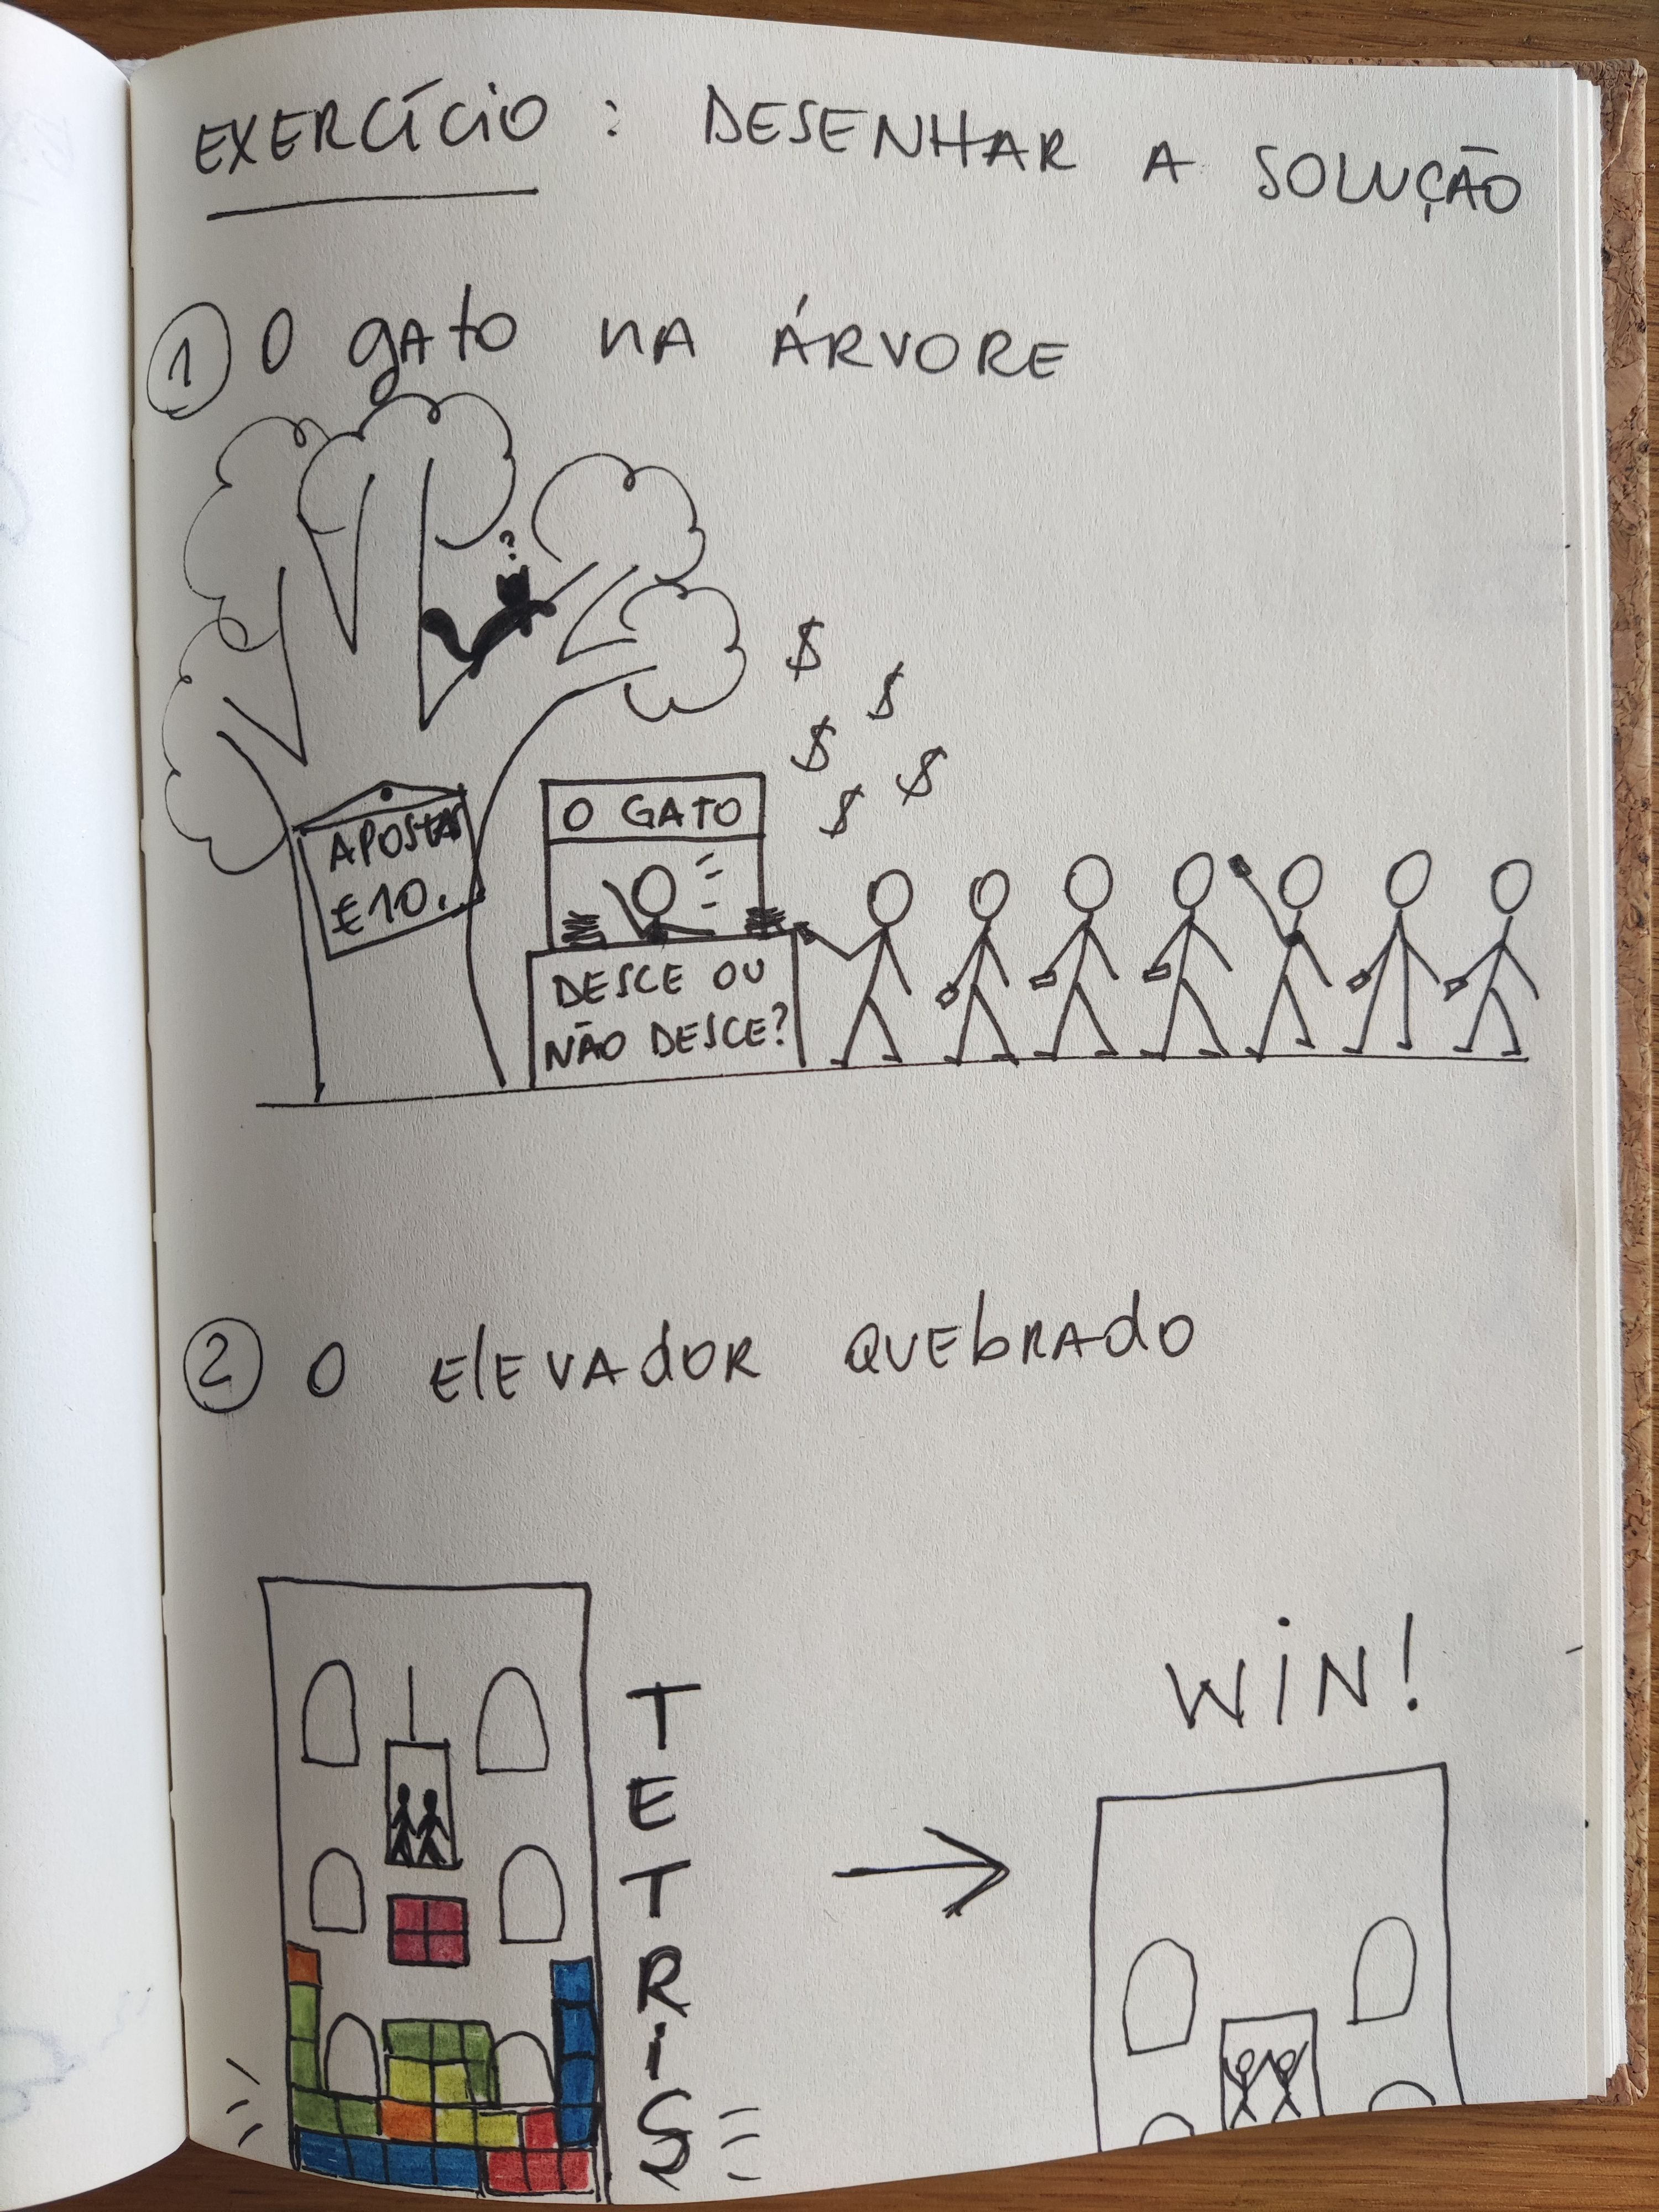 EXERCÍCIO : DESENHAR A SOLUÇÃO
1 O gATO NA ÁRVORE
?
$
$
$
$
$
APOSTAS
€10.
O GATO
DESCE OU
NÃO DESCE?
2 O ElEVAdOR QUEbRAdO
TETRiS
WiN!